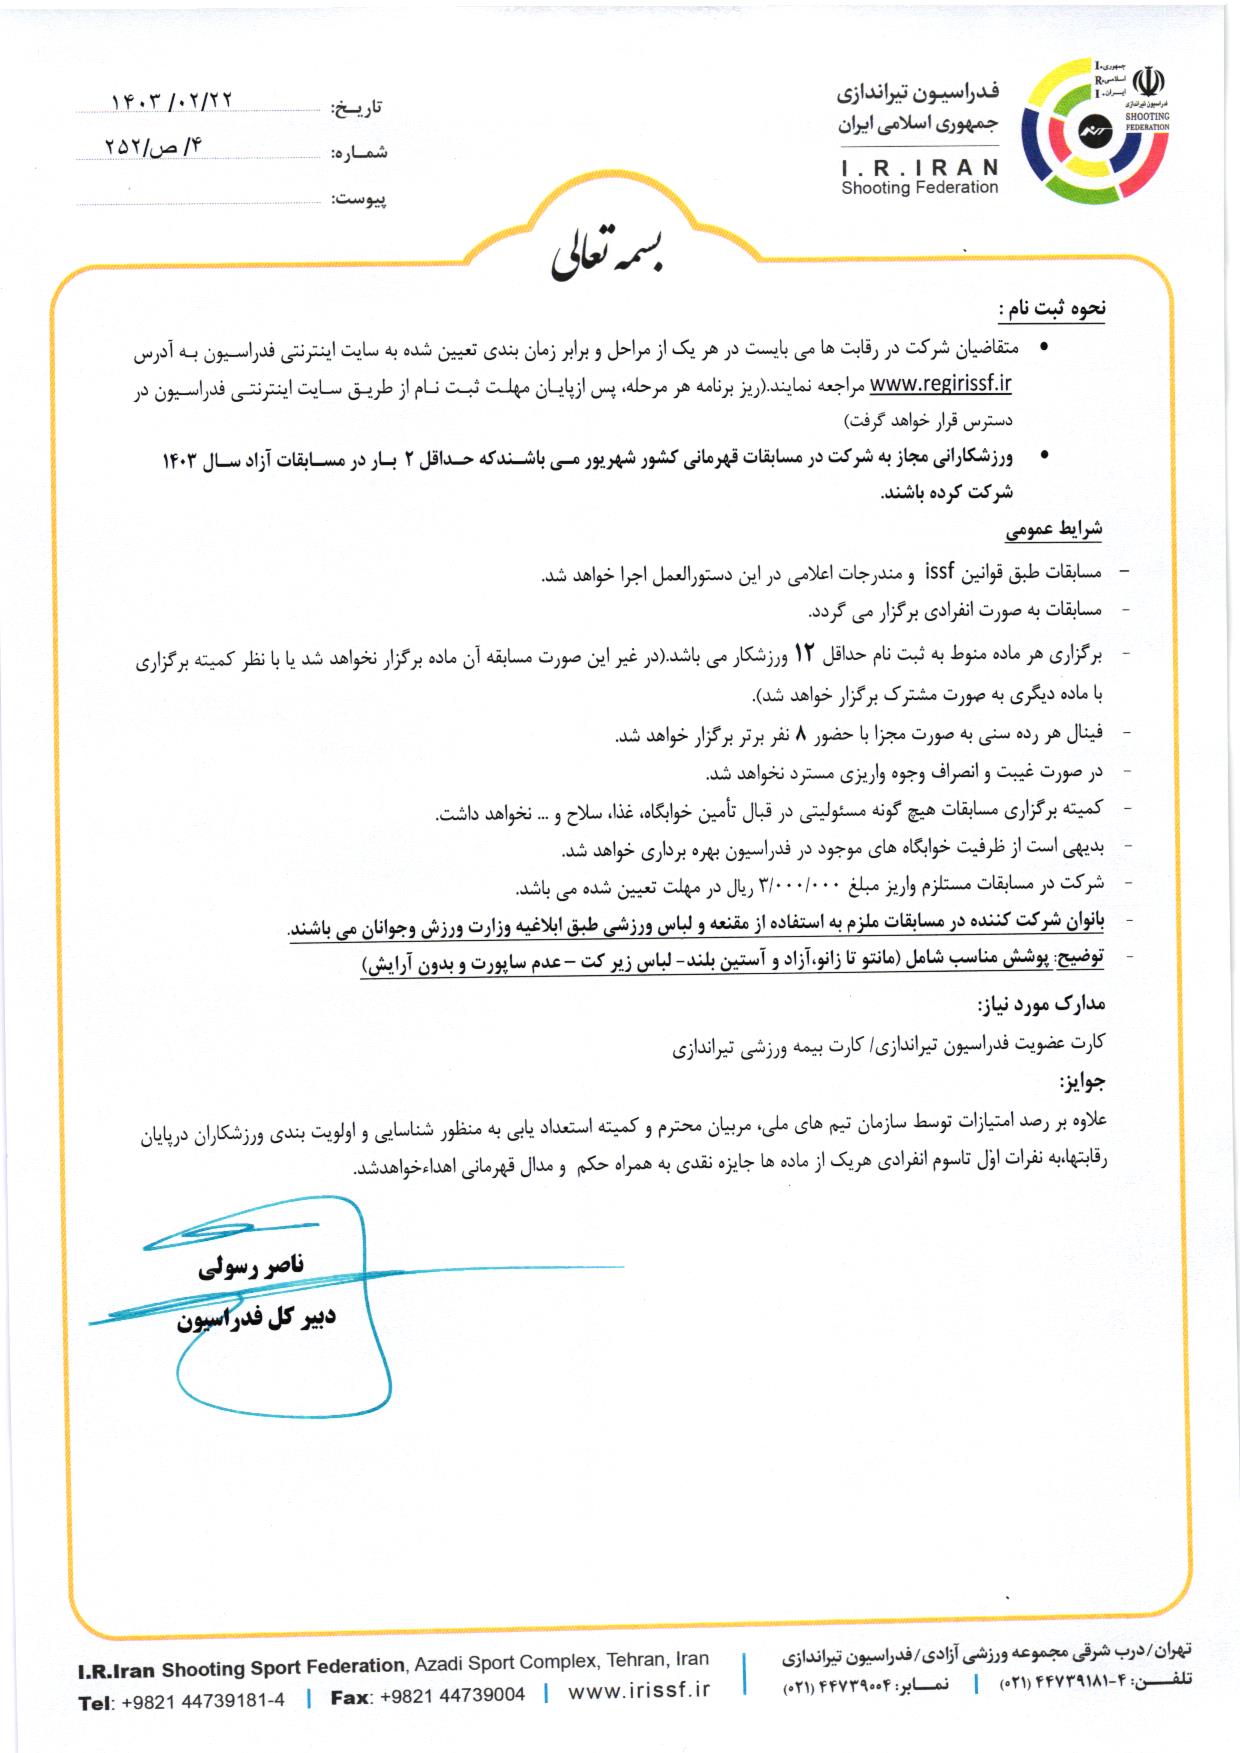 جمهوری I.
اسلامی R.
ایران I.
فدراسیون تیراندازی
SHOOTING
FEDERATION
فدراسیون تیراندازی
جمهوری اسلامی ایران
I.R.IRAN
Shooting Federation
تاریخ: ۱۴۰۳/۰۲/۲۲
شماره: ۴/ ص/۲۵۲
پیوست:
بسمه تعالی
نحوه ثبت نام :
• متقاضیان شرکت در رقابت ها می بایست در هر یک از مراحل و برابر زمان بندی تعیین شده به سایت اینترنتی فدراسیون به آدرس
www.regirissf.ir مراجعه نمایند.(ریز برنامه هر مرحله، پس ازپایان مهلت ثبت نام از طریق سایت اینترنتی فدراسیون در
دسترس قرار خواهد گرفت)
• ورزشکارانی مجاز به شرکت در مسابقات قهرمانی کشور شهریور می باشندکه حداقل ۲ بار در مسابقات آزاد سال ۱۴۰۳
شرکت کرده باشند.
شرایط عمومی
- مسابقات طبق قوانین issf و مندرجات اعلامی در این دستورالعمل اجرا خواهد شد.
- مسابقات به صورت انفرادی برگزار می گردد.
- برگزاری هر ماده منوط به ثبت نام حداقل ۱۲ ورزشکار می باشد.(در غیر این صورت مسابقه آن ماده برگزار نخواهد شد یا با نظر کمیته برگزاری
با ماده دیگری به صورت مشترک برگزار خواهد شد).
- فینال هر رده سنی به صورت مجزا با حضور ۸ نفر برتر برگزار خواهد شد.
- در صورت غیبت و انصراف وجوه واریزی مسترد نخواهد شد.
- کمیته برگزاری مسابقات هیچ گونه مسئولیتی در قبال تأمین خوابگاه، غذا، سلاح و ... نخواهد داشت.
- بدیهی است از ظرفیت خوابگاه های موجود در فدراسیون بهره برداری خواهد شد.
- شرکت در مسابقات مستلزم واریز مبلغ ۳/۰۰۰/۰۰۰ ریال در مهلت تعیین شده می باشد.
- بانوان شرکت کننده در مسابقات ملزم به استفاده از مقنعه و لباس ورزشی طبق ابلاغیه وزارت ورزش وجوانان می باشند.
- توضیح: پوشش مناسب شامل (مانتو تا زانو،آزاد و آستین بلند- لباس زیر کت – عدم ساپورت و بدون آرایش)
مدارک مورد نیاز:
کارت عضویت فدراسیون تیراندازی/ کارت بیمه ورزشی تیراندازی
جوایز:
علاوه بر رصد امتیازات توسط سازمان تیم های ملی، مربیان محترم و کمیته استعداد یابی به منظور شناسایی و اولویت بندی ورزشکاران درپایان
رقابتها،به نفرات اوّل تاسوم انفرادی هریک از ماده ها جایزه نقدی به همراه حکم و مدال قهرمانی اهداءخواهدشد.
ناصر رسولی
دبیر کل فدراسیون
تهران/درب شرقی مجموعه ورزشی آزادی/فدراسیون تیراندازی
تلفن: ۴-۴۴۷۳۹۱۸۱ (۰۲۱) | نمابر: ۴۴۷۳۹۰۰۴ (۰۲۱)
I.R.Iran Shooting Sport Federation, Azadi Sport Complex, Tehran, Iran
Tel: +9821 44739181-4 | Fax: +9821 44739004 | www.irissf.ir